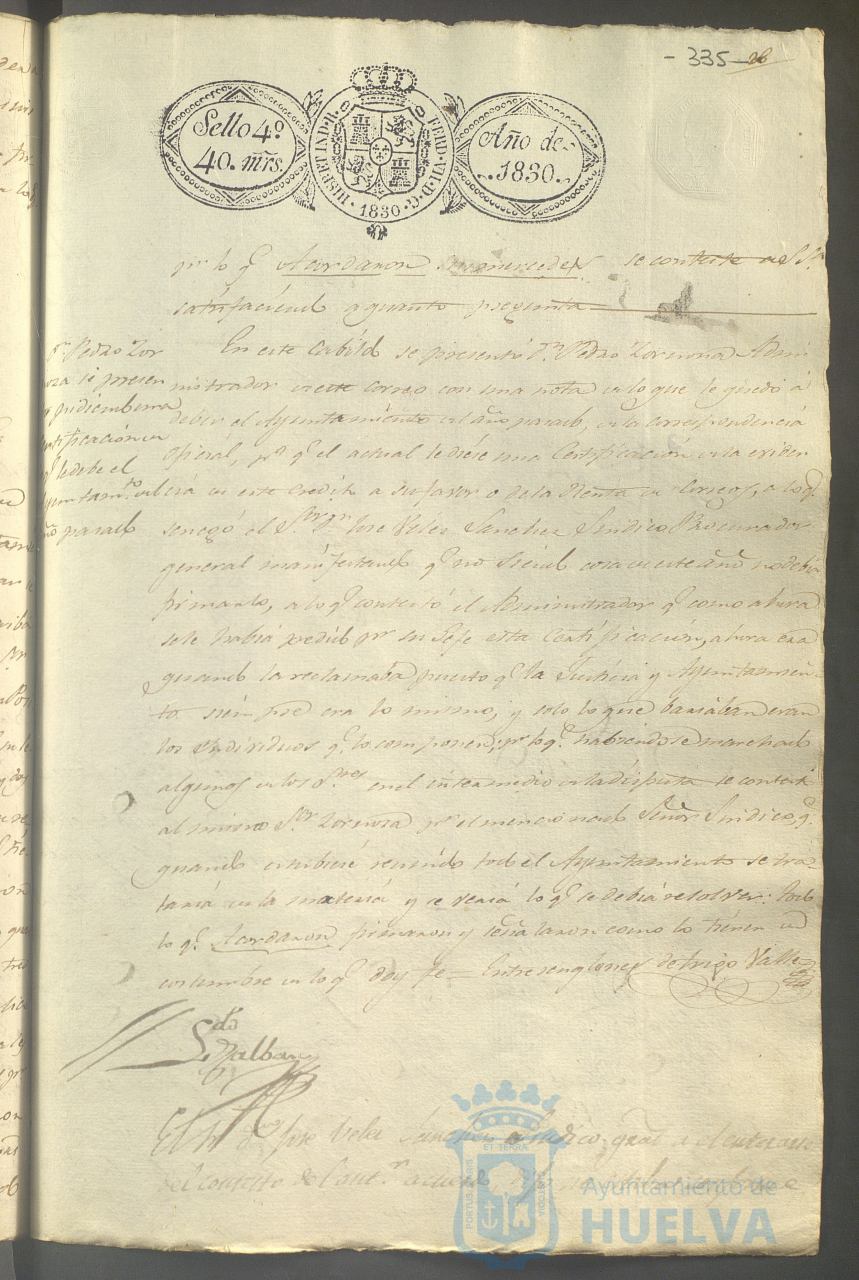 - 335 -
Sello 4º
40. mrs.
HISP. ET IND. R. FERD. VII. D. G.
1830
Año de
1830.
pr. lo q. Acordaron sus mercedes se conteste a S. Sª
satisfaciend a quanto pregunta
Dn. Pedro Zor
noza se presen
pidiendo una
certificación
q. le debe el
Ayuntamto.
año pasado
En este Cabildo se presentó Dn. Pedro Zornoza Admi
nistrador de este Correo con una nota de lo que le quedó á
deber el Ayuntamiento el año pasado, en la correspondencia
oficial, pª q. el actual le diese una Certificación en la eviden
cia de este credito a su favor o de la Renta de Correos, a lo q.
se negó el Sr. Dn. Jose Velez Sanchez Sindico Procurador
general manifestando q. no siend cosa de este año no debia
firmarlo, a lo q. contestó el Administrador q. como ahora
se le habia pedido pr. su Gefe esta Certificacion, ahora era
quando la reclamaba puesto q. la Justicia y Ayuntamien
to siempre era lo mismo, y solo lo que bariaban eran
los Individuos q. lo componen; pr. lo q. habiendose marchado
algunos de los Sres. en el intermedio de la disputa se contestó
al mismo Sr. Zornoza pr. el mencionado Señor Sindico, q.
quando estubiese reunido todo el Ayuntamiento se tra
taria de la materia y se veria lo q. se debia resolver: todo
lo q. Acordaron firmaron y señalaron como lo tienen de
costumbre de lo q. doy fe = Entre renglones de trigo Valle
Ldo. Dalban
El Sr. Dn. Jose Velez Sanchez Sindico gral.
del contesto del ant.r acuerdo, dijo
PORTUS MARIS ET TERRAE CUSTODIA
Ayuntamiento de
HUELVA